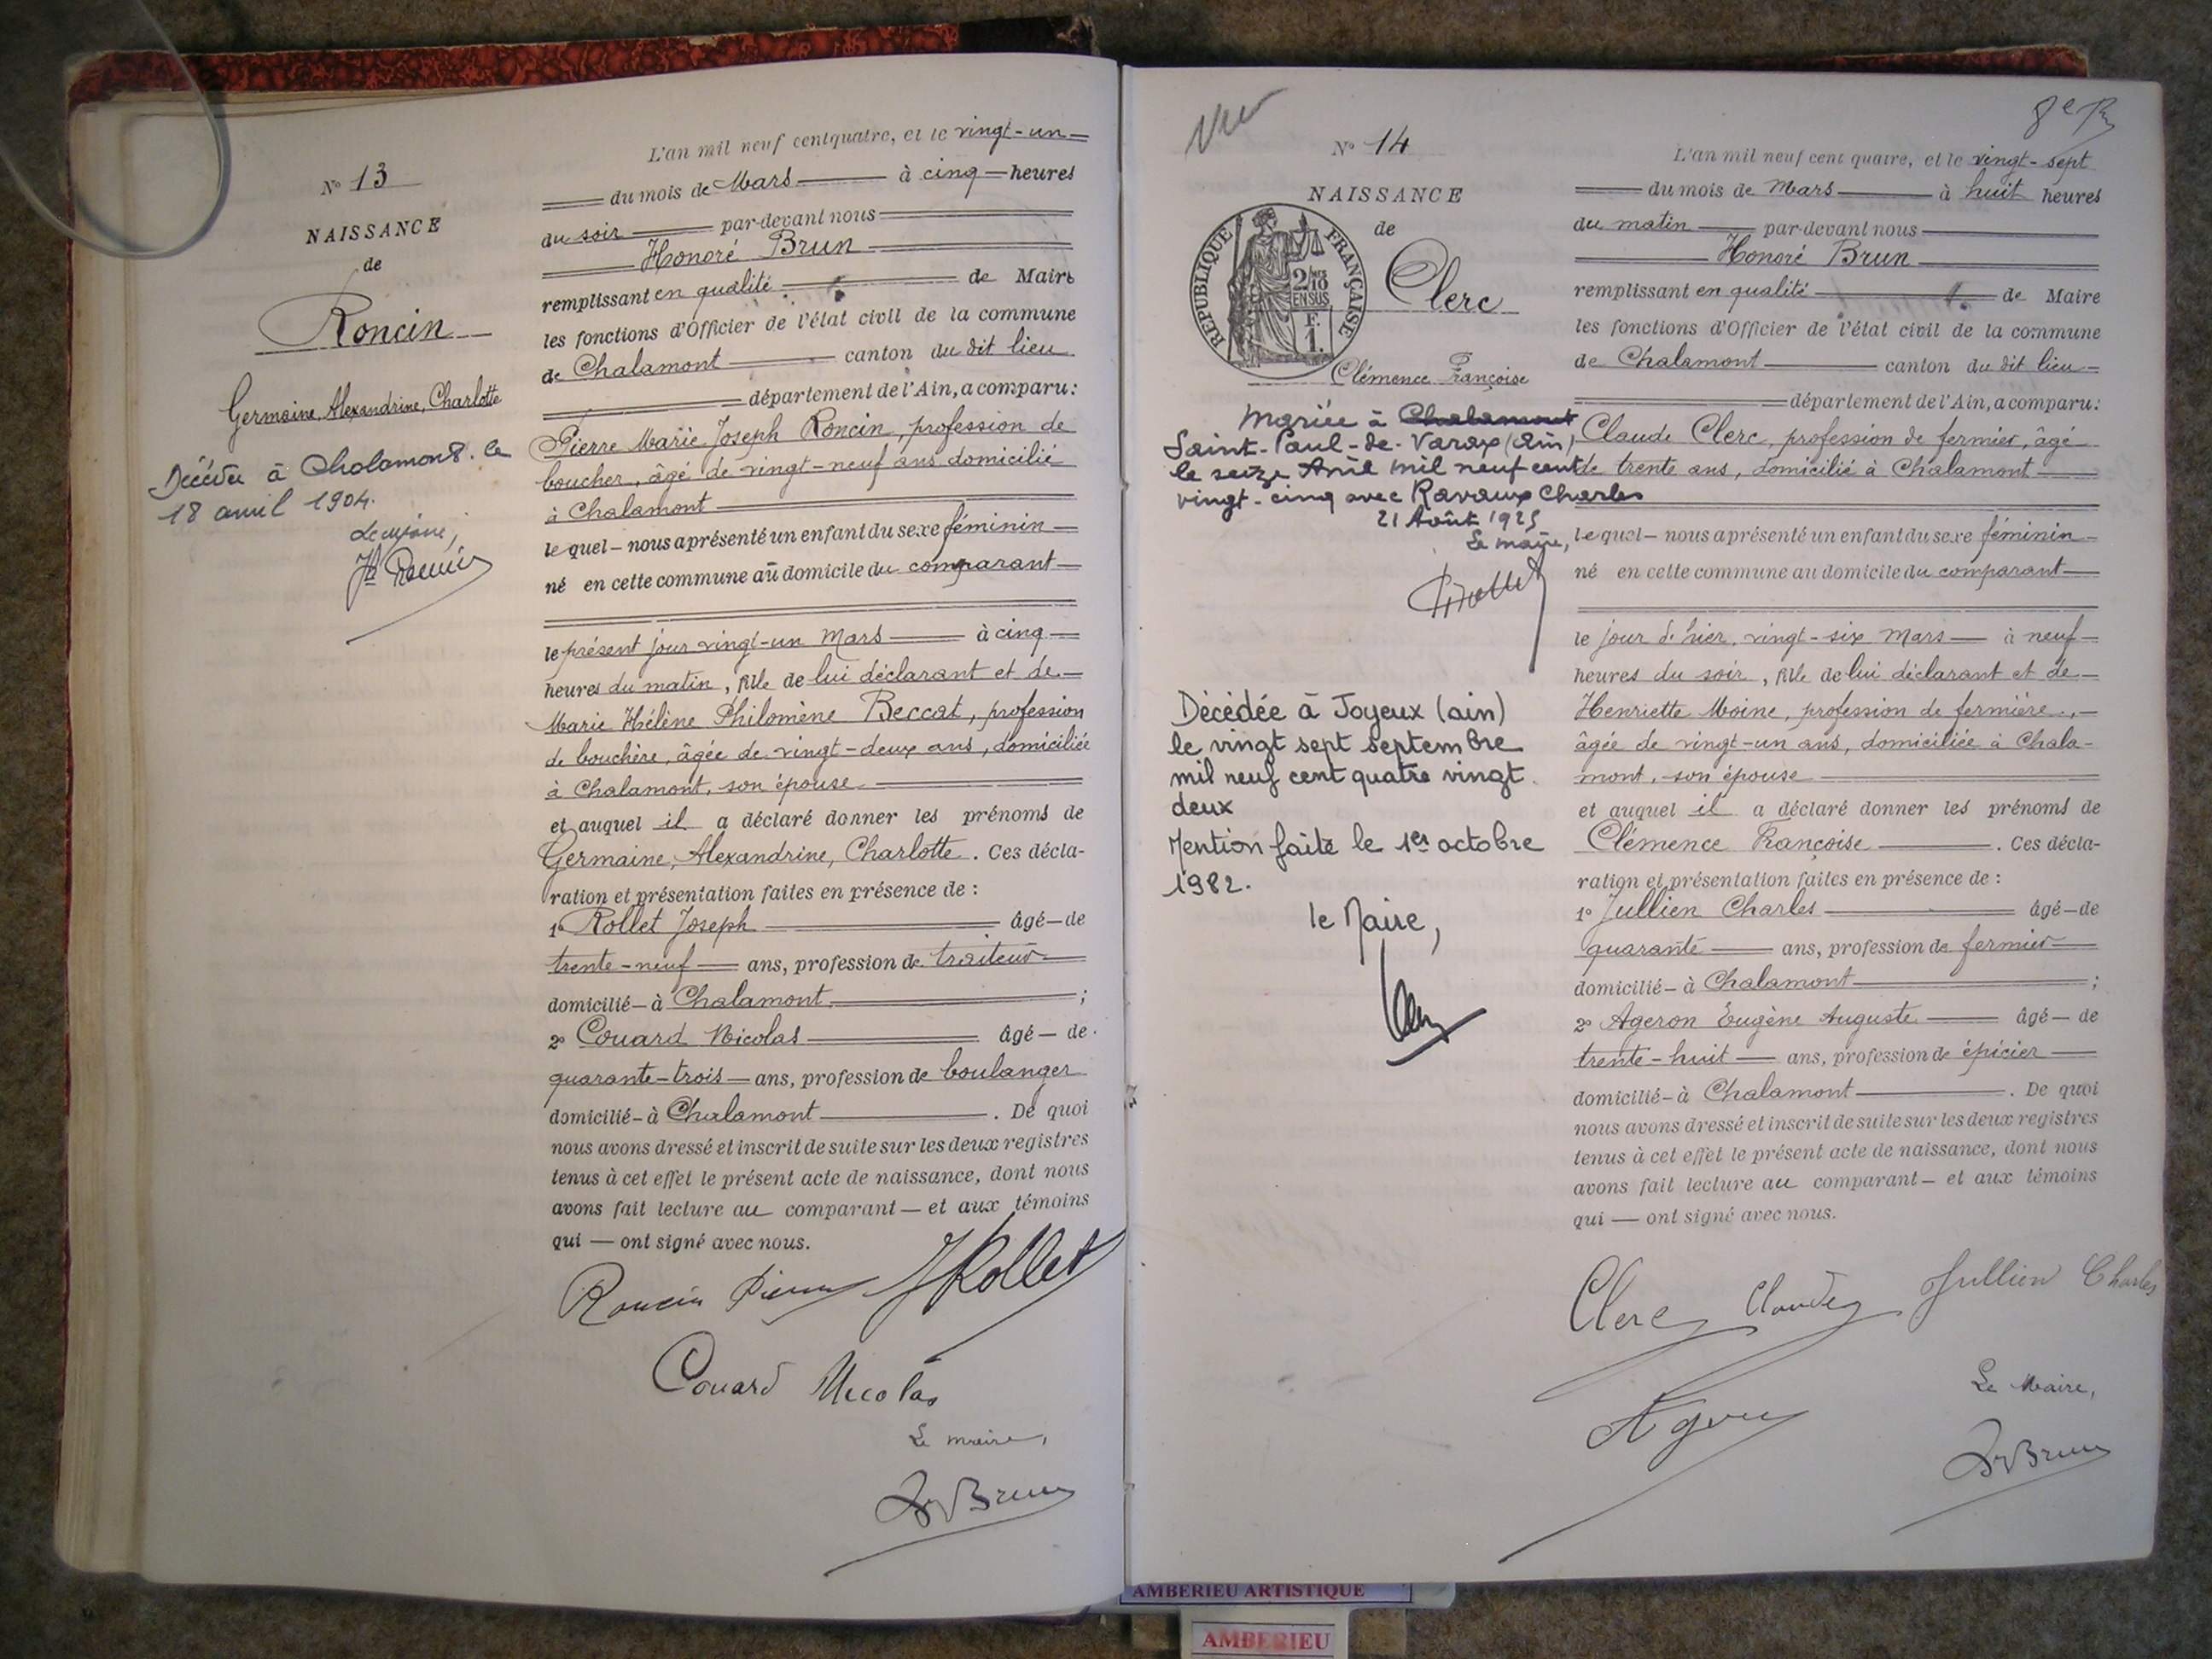 N° 13
NAISSANCE
de
Roncin
Germaine, Alexandrine, Charlotte
Décédée à Chalamont. le
18 avril 1904.
Le maire,
L'an mil neuf cent quatre, et le vingt-un
du mois de Mars à cinq heures
du soir par-devant nous
Honoré Brun
remplissant en qualité de Maire
les fonctions d'Officier de l'état civil de la commune
de Chalamont canton du dit lieu
département de l'Ain, a comparu:
Pierre Marie Joseph Roncin, profession de
boucher, âgé de vingt-neuf ans domicilié
à Chalamont
lequel nous a présenté un enfant du sexe féminin
né en cette commune au domicile du comparant
le présent jour vingt-un Mars à cinq
heures du matin, fille de lui déclarant et de
Marie Hélène Philomène Beccat, profession
de bouchère, âgée de vingt-deux ans, domiciliée
à Chalamont, son épouse
et auquel il a déclaré donner les prénoms de
Germaine, Alexandrine, Charlotte. Ces décla-
ration et présentation faites en présence de :
1° Rollet Joseph âgé de
trente-neuf ans, profession de traiteur
domicilié à Chalamont ;
2° Couard Nicolas âgé de
quarante-trois ans, profession de boulanger
domicilié à Chalamont . De quoi
nous avons dressé et inscrit de suite sur les deux registres
tenus à cet effet le présent acte de naissance, dont nous
avons fait lecture au comparant et aux témoins
qui ont signé avec nous.
Roncin Pierre JRollet
Couard Nicolas
Le maire,
Brun
N° 14
NAISSANCE
de
RÉPUBLIQUE FRANÇAISE
2/10
EN SUS
F.
1.
Clerc
Clémence Françoise
Mariée à Chalamont
Saint-Paul-de-Varax (Ain)
le seize Avril mil neuf cent
vingt-cinq avec Ravaux Charles
21 Août 1925
Le maire,
Décédée à Joyeux (ain)
le vingt sept septembre
mil neuf cent quatre vingt
deux
Mention faite le 1er octobre
1982.
le Maire,
L'an mil neuf cent quatre, et le vingt-sept
du mois de Mars à huit heures
du matin par-devant nous
Honoré Brun
remplissant en qualité de Maire
les fonctions d'Officier de l'état civil de la commune
de Chalamont canton du dit lieu
département de l'Ain, a comparu:
Claude Clerc, profession de fermier, âgé
de trente ans, domicilié à Chalamont
lequel nous a présenté un enfant du sexe féminin
né en cette commune au domicile du comparant
le jour d'hier, vingt-six Mars à neuf
heures du soir, fille de lui déclarant et de
Henriette Moine, profession de fermière,
âgée de vingt-un ans, domiciliée à Chala-
mont, son épouse
et auquel il a déclaré donner les prénoms de
Clémence Françoise . Ces décla-
ration et présentation faites en présence de :
1° Jullien Charles âgé de
quarante ans, profession de fermier
domicilié à Chalamont ;
2° Ageron Eugène Auguste âgé de
trente-huit ans, profession de épicier
domicilié à Chalamont . De quoi
nous avons dressé et inscrit de suite sur les deux registres
tenus à cet effet le présent acte de naissance, dont nous
avons fait lecture au comparant et aux témoins
qui ont signé avec nous.
Clerc Claude Jullien Charles
Le Maire,
Brun
AMBERIEU ARTISTIQUE
AMBERIEU